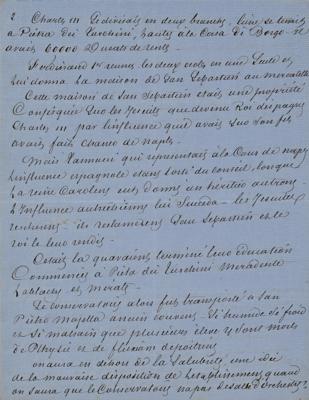 2 Charles III le divisait en deux branches, l'une se tenait
à Piétra dei Turchini, l'autre à la Casa di Borgo. Il
avait 60000 Ducats de rente.
Ferdinand 1er réunit les deux écoles en une seule et
lui donna la maison de San Sebastien au mercatello
Cette maison de San Sebastien était une propriété
Confisquée sur les Jesuits que devenu Roi d'Espagne
Charles III par l'influence qu'il avait sur son fils
avait fait chasser de naples.
Mais Tannucci qui représentait à la Cour de naples
l'influence espagnole étant sorti du conseil, lorsque
La reine Caroline eut donné un héritier au trône
L'Influence autrichienne lui Succéda. les Jesuites
revinrent. ils réclamèrent San Sebastien et le
roi le leur rendit.
C'était là qu'avaient terminé leur éducation
Commencée à Piéta dei Turchini Mercadante
Lablache et
Le conservatoire alors fut transporté à San
Piétro Majella ancien couvent. Si humide si froid
et si malsain que plusieurs élèves y sont morts
de Phtysie et de fluxion de poitrine
on aura en dehors de la Salubrité une idée
de la mauvaise disposition de l'établissement quand
on saura que le Conservatoire n'a pas de salle d'orchestre